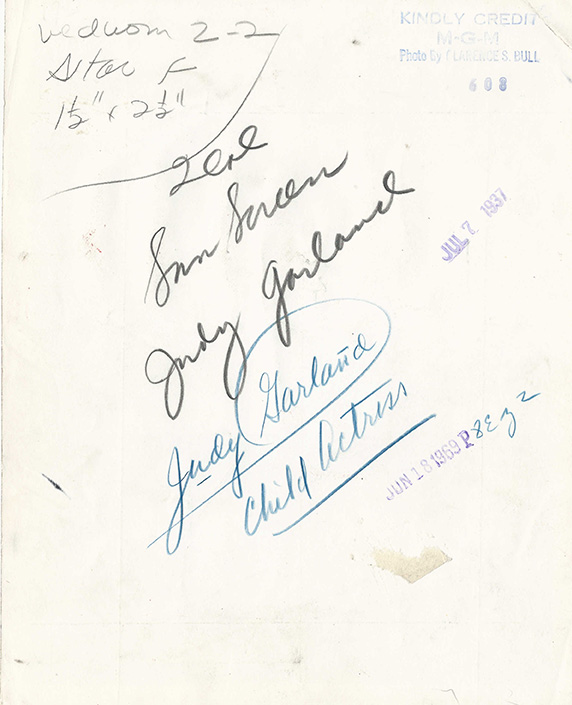 2-2
Star F
1½" x 2½"
KINDLY CREDIT
M-G-M
Photo by CLARENCE S. BULL
608
2 col
Sun Screen
Judy Garland
JUL 7 1937
Judy Garland
Child Actress
JUN 18 1969 P